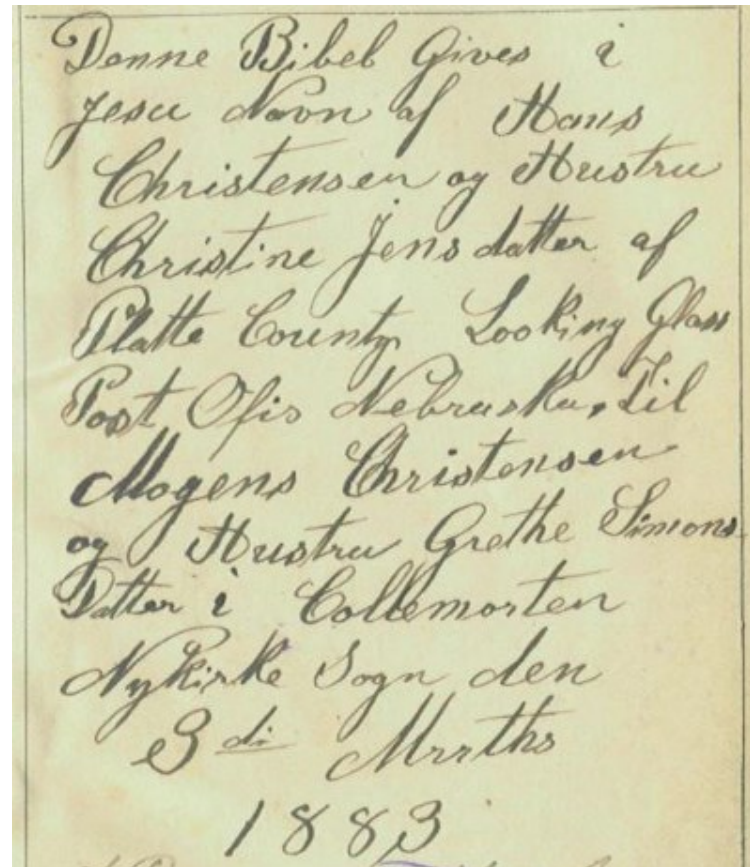 Denne Bibel Gives i
Jesu Navn af Hans
Christensen og Hustru
Christine Jens datter af
Platte County Looking Glass
Post Ofis Nebraska, Til
Mogens Christensen
og Hustru Grethe Simons
Datter i Collemorten
Nykirke Sogn den
3 di Mrrths
1883